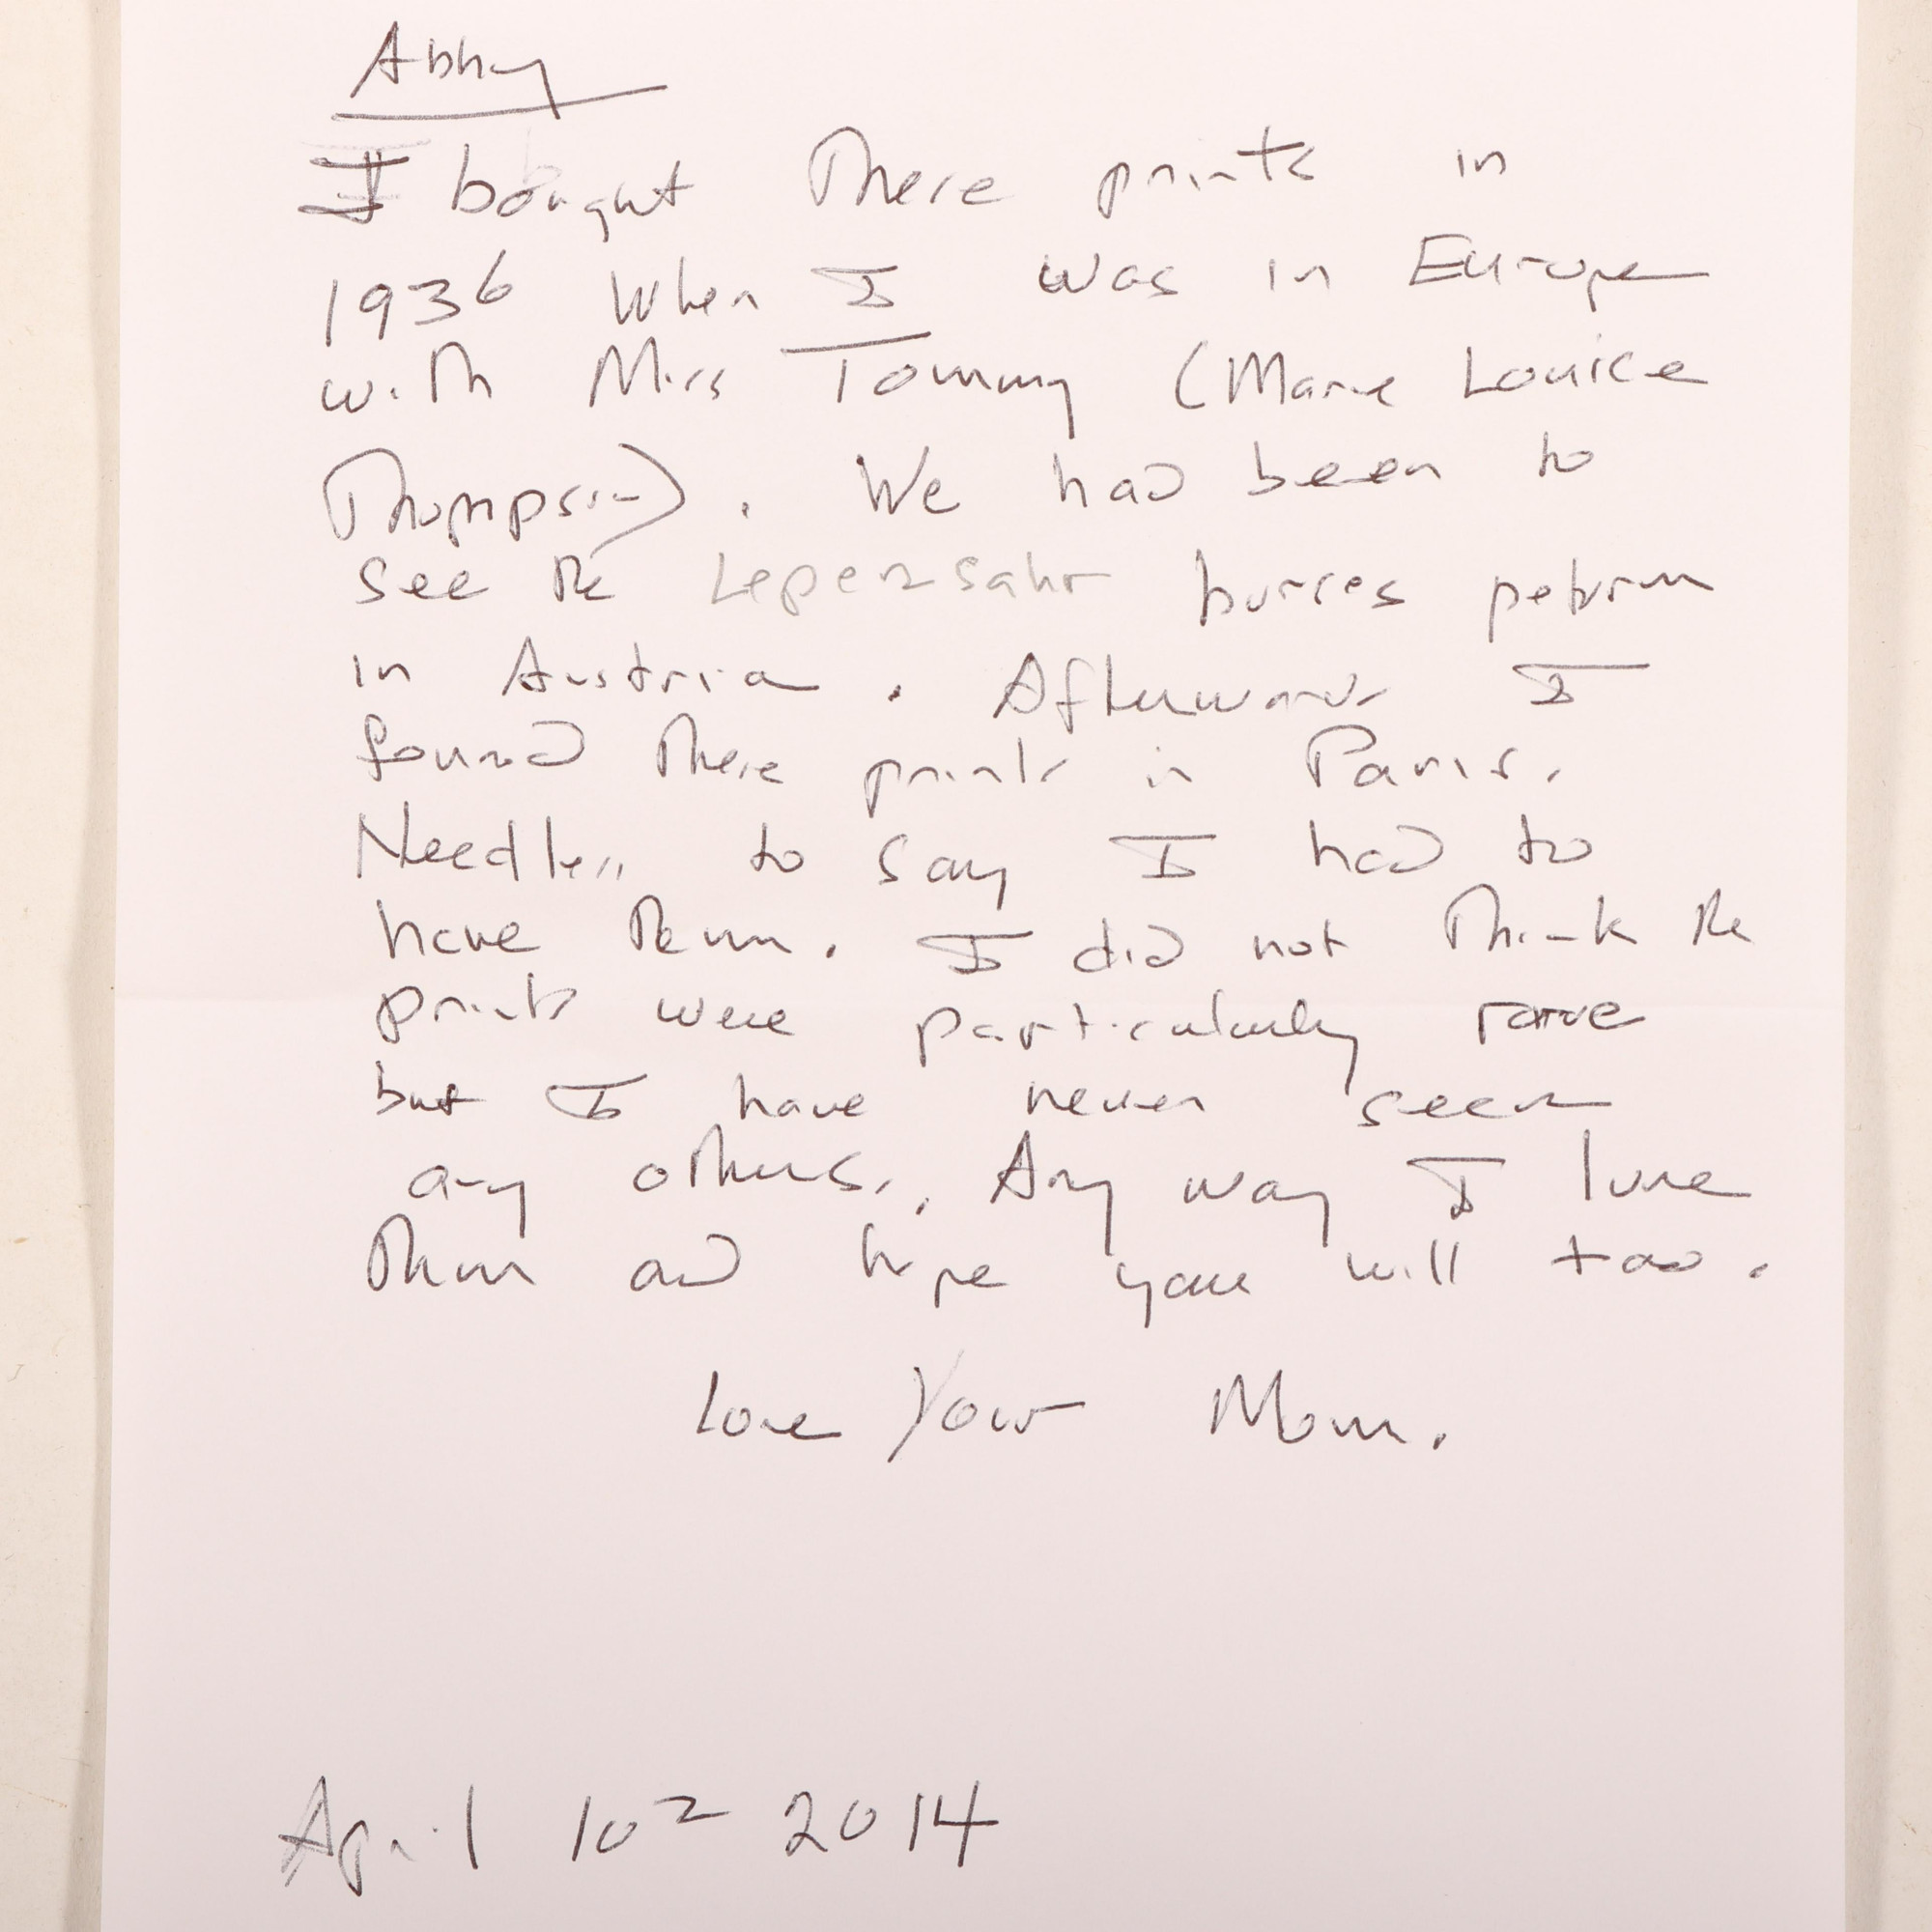 Abby
I bought These prints in
1936 When I was in Europe
with Miss Tommy (Marie Louise
Thompson). We had been to
see the Lepenzahr horses perform
in Austria. Afterwards I
found these prints in Paris.
Needless to say I had to
have them. I did not Think the
prints were particularly rare
but I have never seen
any others. Any way I love
Them and hope you will too.
Love Your Mom.
April 10 2014